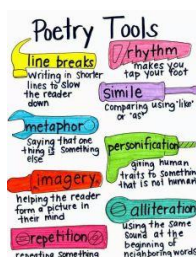 Poetry Tools
line breaks
Writing in shorter
lines to slow
the reader
down
rhythm
makes you
tap your foot
simile
Comparing using "like"
or "as"
metaphor
saying that one
thing is something
else
personification
giving human
traits to something
that is not human
imagery
helping the reader
form a picture in
their mind
alliteration
using the same
sound at the
beginning of
neighboring words
repetition
repeating something